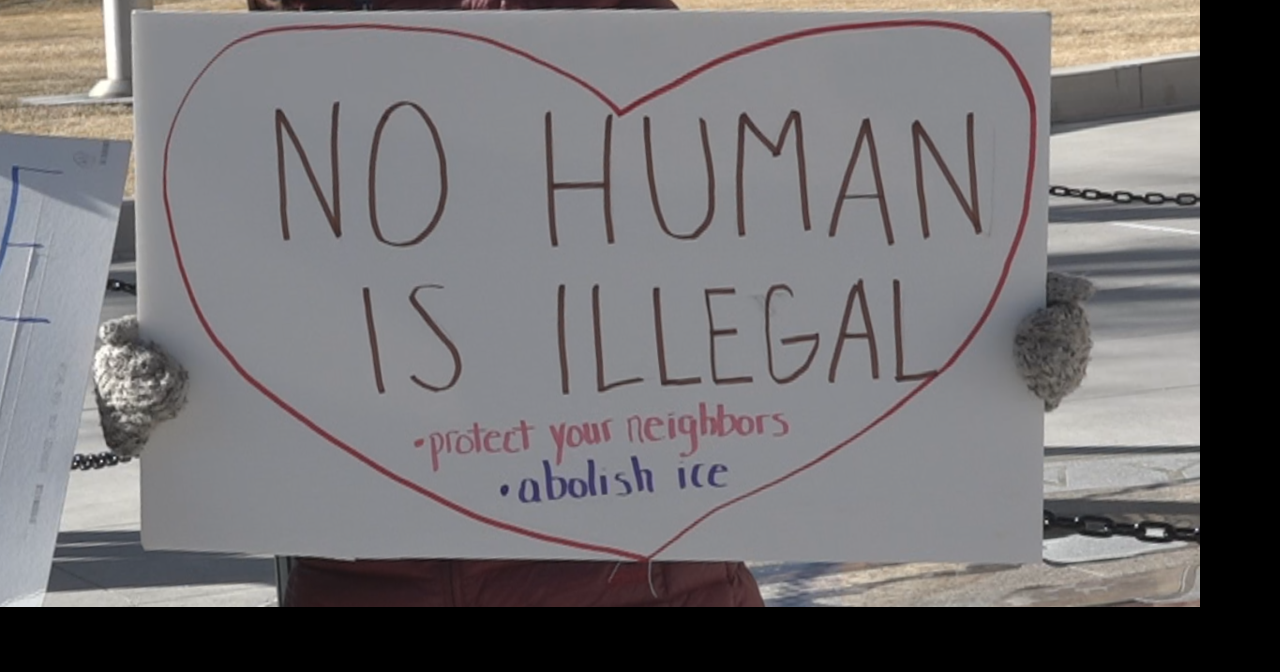 NO HUMAN
IS ILLEGAL
•protect your neighbors
•abolish ice